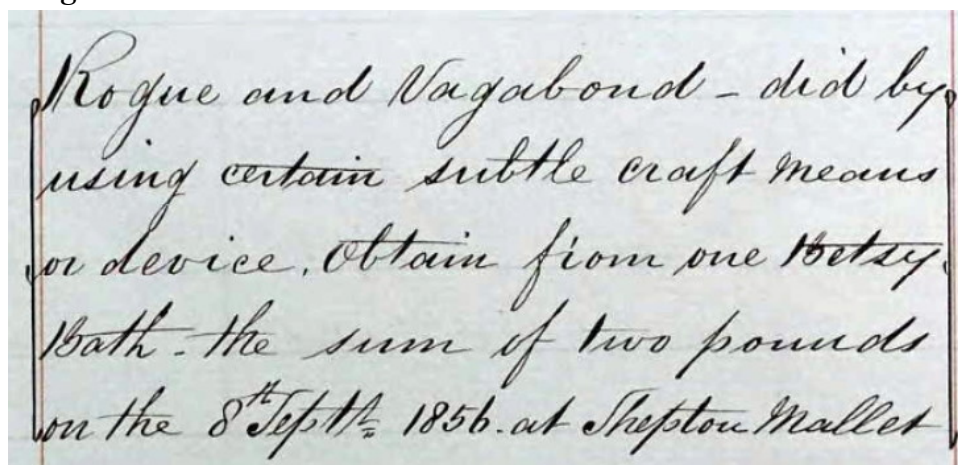 Rogue and Vagabond – did by
using certain subtle craft means
or device, obtain from one Betsy
Bath – the sum of two pounds
on the 8th Septr 1856. at Shepton Mallet